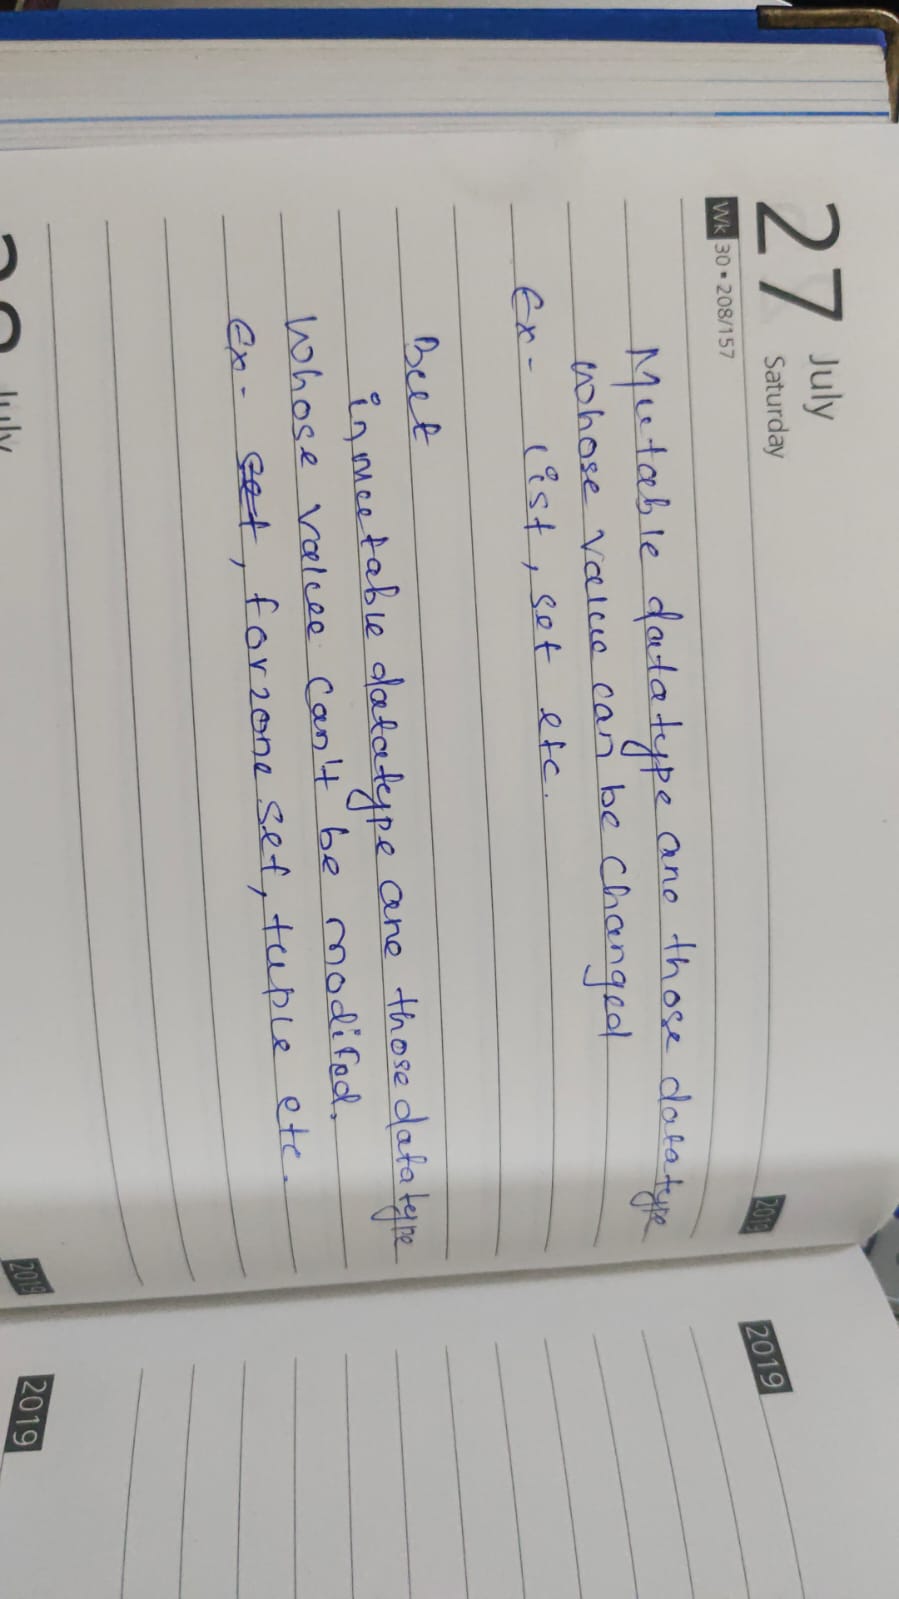 27 July
Saturday
Wk 30 • 208/157
2019
Mutable datatype are those datatype
whose value can be changed
Ex- list, set etc.
But
inmutable datatype are those datatype
whose values can't be modifed.
Ex- set, forzone set, tuple etc.
July
2019
2019
2019